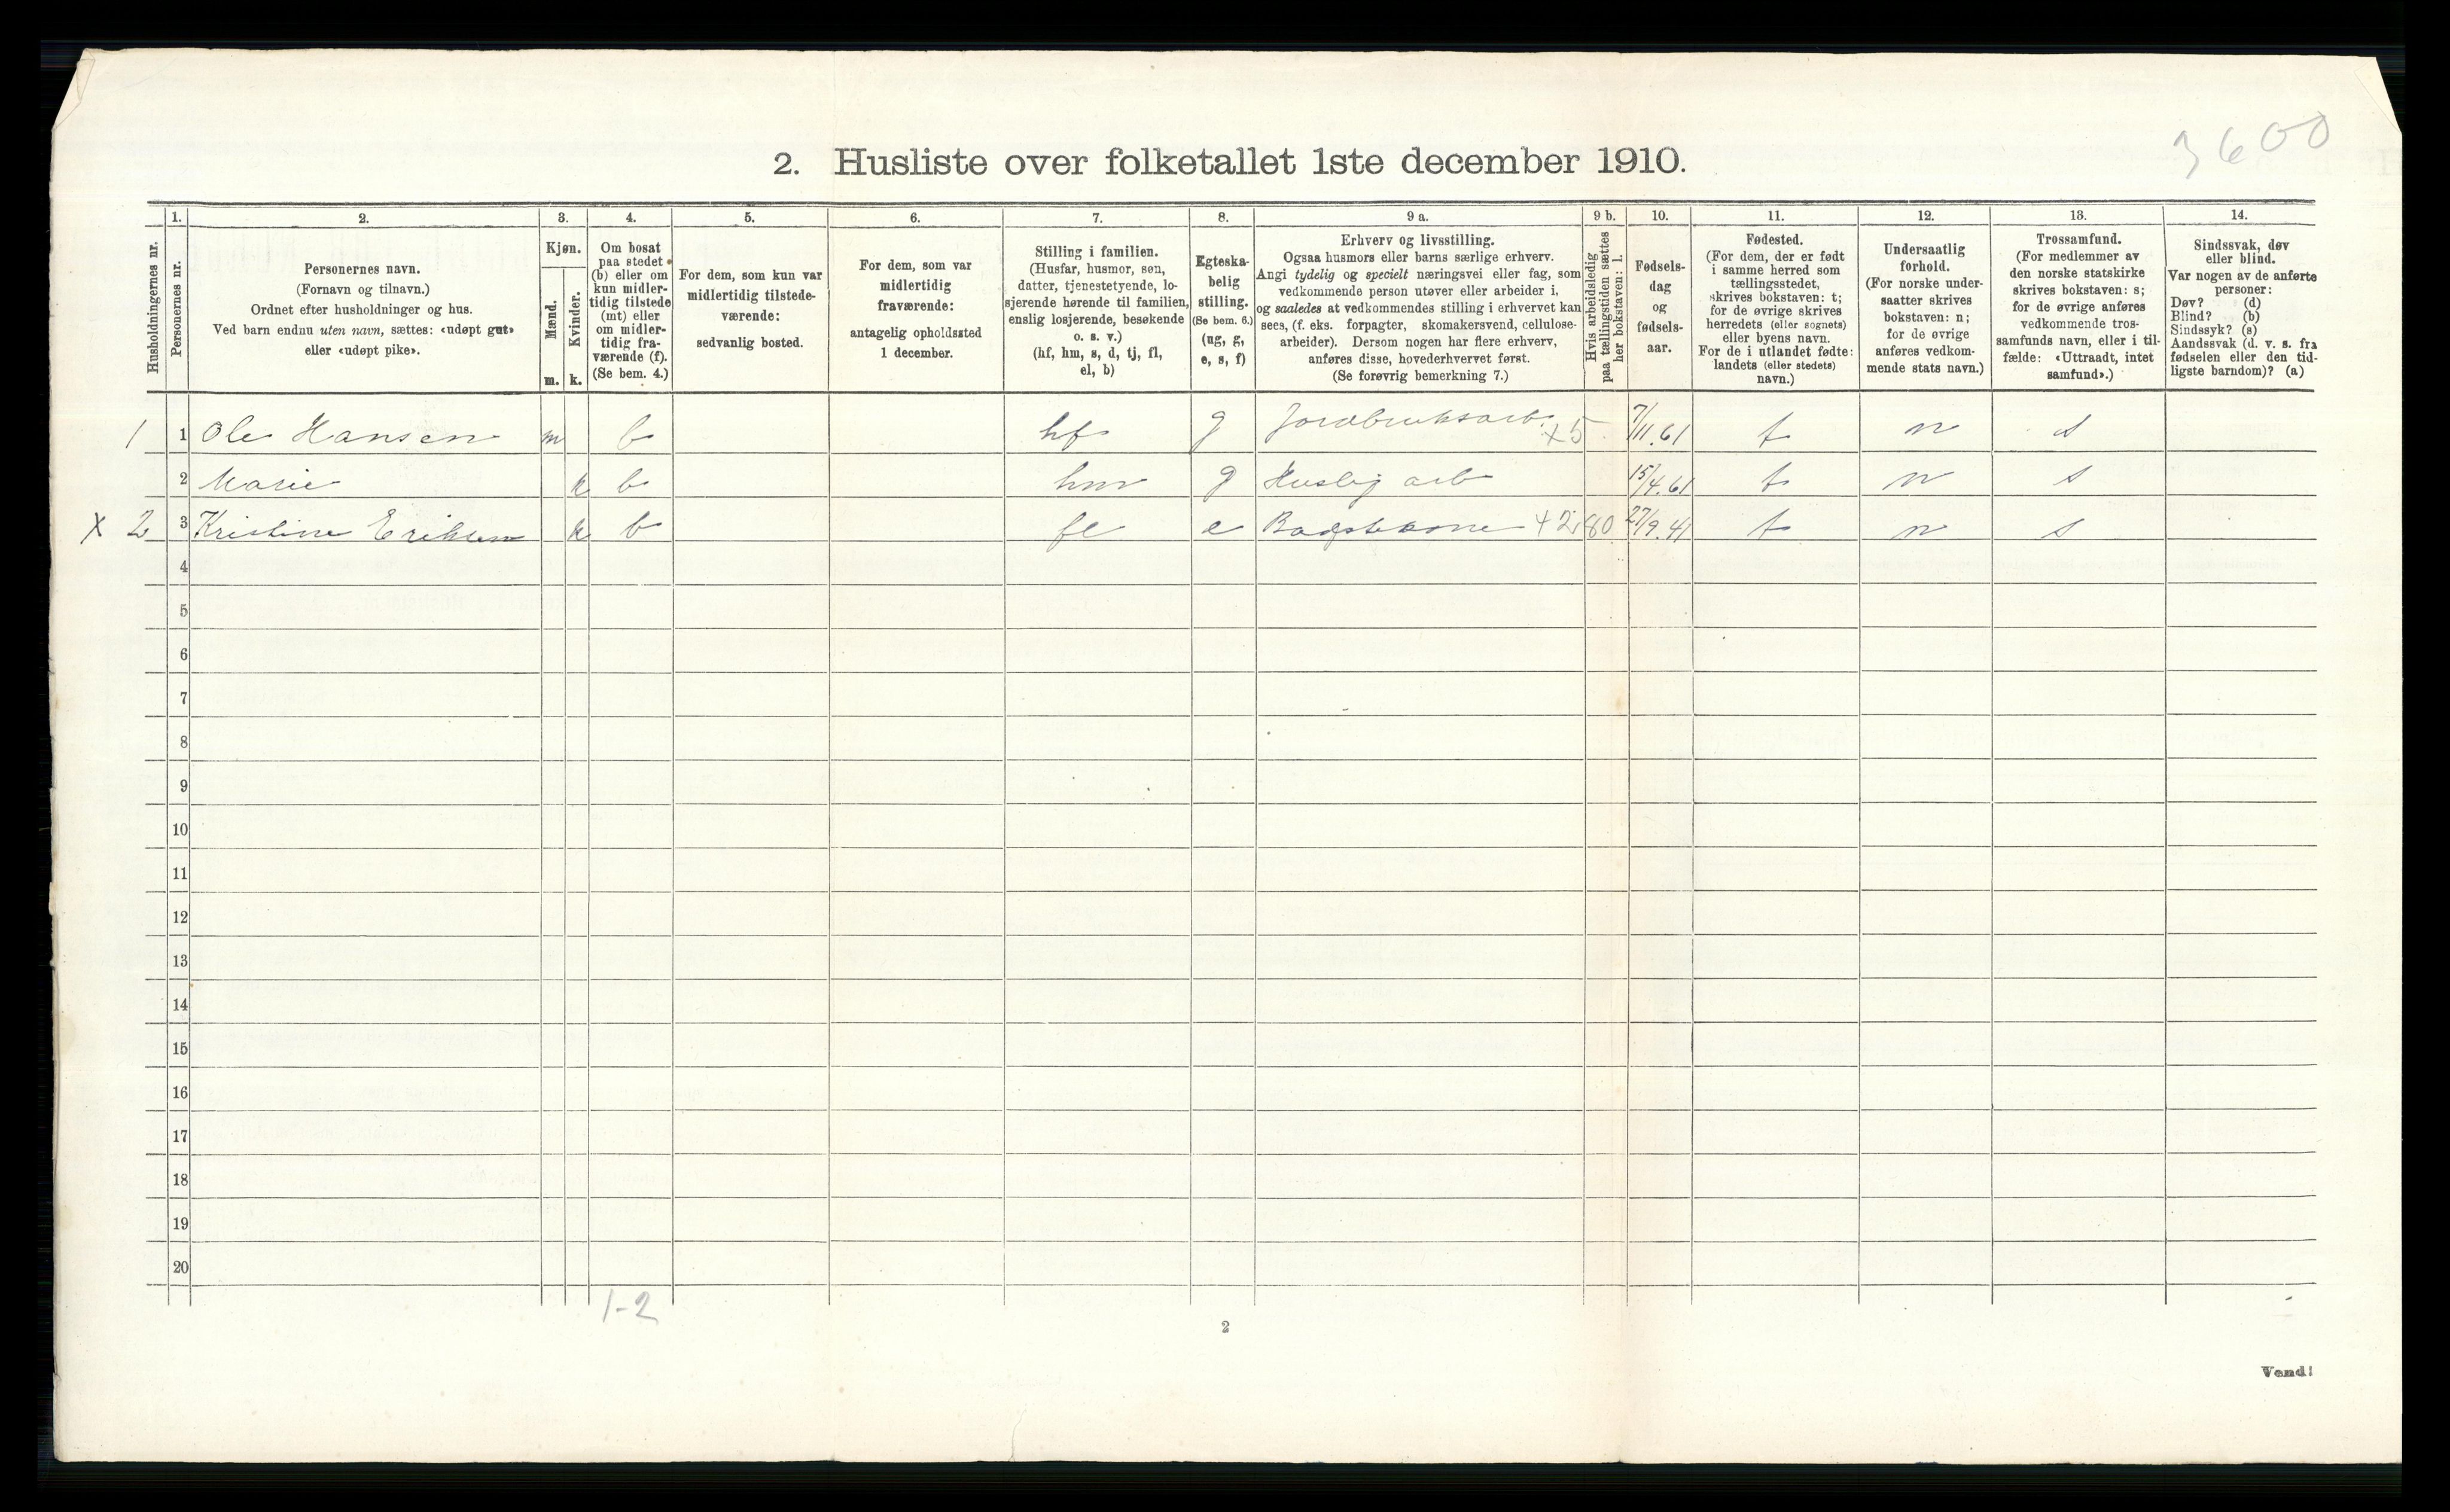 3600
2. Husliste over folketallet 1ste december 1910.
Husholdningernes nr.
1.
Personernes nr.
2.
Personernes navn.
(Fornavn og tilnavn.)
Ordnet efter husholdninger og hus.
Ved barn endnu uten navn, sættes: «udøpt gut»
eller «udøpt pike».
3.
Kjøn.
Mænd.
Kvinder.
m. k.
4.
Om bosat
paa stedet
(b) eller om
kun midler-
tidig tilstede
(mt) eller
om midler-
tidig fra-
værende (f).
(Se bem. 4.)
5.
For dem, som kun var
midlertidig tilstede-
værende:
sedvanlig bosted.
6.
For dem, som var
midlertidig
fraværende:
antagelig opholdssted
1 december.
7.
Stilling i familien.
(Husfar, husmor, søn,
datter, tjenestetyende, lo-
sjerende hørende til familien,
enslig losjerende, besøkende
o. s. v.)
(hf, hm, s, d, tj, fl,
el, b)
8.
Egteska-
belig
stilling.
(Se bem. 6.)
(ug, g,
e, s, f)
9 a.
Erhverv og livsstilling.
Ogsaa husmors eller barns særlige erhverv.
Angi tydelig og specielt næringsvei eller fag, som
vedkommende person utøver eller arbeider i,
og saaledes at vedkommendes stilling i erhvervet kan
sees, (f. eks. forpagter, skomakersvend, cellulose-
arbeider). Dersom nogen har flere erhverv,
anføres disse, hovederhvervet først.
(Se forøvrig bemerkning 7.)
9 b.
Hvis arbeidsledig
paa tællingstiden sættes
her bokstaven: l.
10.
Fødsels-
dag
og
fødsels-
aar.
11.
Fødested.
(For dem, der er født
i samme herred som
tællingsstedet,
skrives bokstaven: t;
for de øvrige skrives
herredets (eller sognets)
eller byens navn.
For de i utlandet fødte:
landets (eller stedets)
navn.)
12.
Undersaatlig
forhold.
(For norske under-
saatter skrives
bokstaven: n;
for de øvrige
anføres vedkom-
mende stats navn.)
13.
Trossamfund.
(For medlemmer av
den norske statskirke
skrives bokstaven: s;
for de øvrige anføres
vedkommende tros-
samfunds navn, eller i til-
fælde: «Uttraadt, intet
samfund».)
14.
Sindssvak, døv
eller blind.
Var nogen av de anførte
personer:
Døv? (d)
Blind? (b)
Sindssyk? (s)
Aandssvak (d. v. s. fra
fødselen eller den tid-
ligste barndom)? (a)
1 1 Ole Hansen m b hf g Jordbruksarb. x5 7/11.61 t n s
2 Marie k b hm g Huslig arb 15/4.61 t n s
x 2 3 Kristine Eriksen k b fl e +2,80 27/9.41 t n s
4
5
6
7
8
9
10
11
12
13
14
15
16
17
18
19
20
1-2
2
Vend!